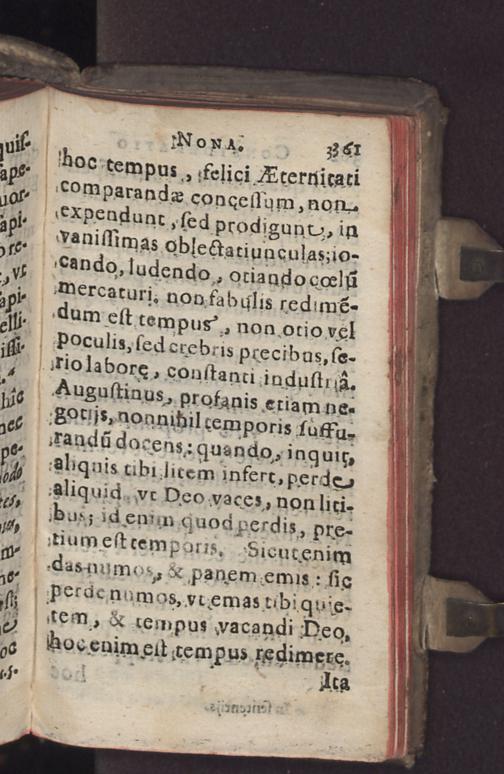 quis-
sape-
uor-
sapi-
ore-
, vt
sapi-
elli-
issi-
hîc
nec
pe-
odo
m-
ne-
oc
NONA. 3361
hoc tempus, felici Æternitati
comparandæ concessum, non
expendunt, sed prodigunt, in
vanissimas oblectatiunculas; io-
cando, ludendo, otiando cœlū
mercaturi. non fabulis redimē-
dum est tempus, non otio vel
poculis, sed crebris precibus, se-
rio labore, constanti industriâ.
Augustinus, profanis etiam ne-
gotijs, nonnihil temporis suffu-
randū docens: quando, inquit,
aliquis tibi litem infert, perde
aliquid vt Deo vaces, non liti-
bus; id enim quod perdis, pre-
tium est temporis. Sicut enim
das numos, & panem emis: sic
perde numos, vt emas tibi quie-
tem, & tempus vacandi Deo,
hoc enim est tempus redimere.
Ita